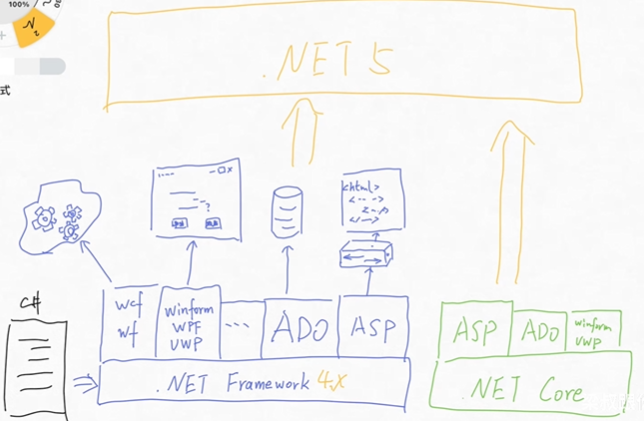 100%
N2
式
.NET 5
<html>
C#
wcf
wf
winform
WPF
UWP
...
ADO
ASP
.NET Framework 4.X
ASP
ADO
winform
UWP
.NET Core